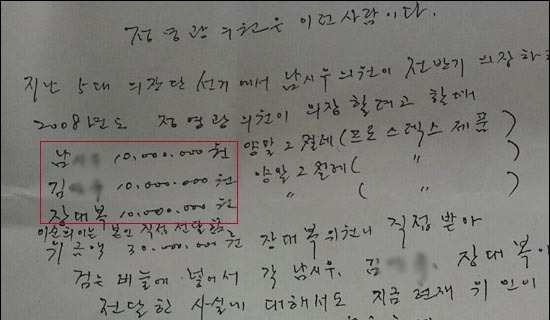 정영광 위원은 이런사람이다.
지난 5대 의장단 선거에서 남시우 의원이 전반기 의장하
2008년도 정영광 의원이 의장 할려고 할때
남 10.000.000원 양말 2 컬레 (프로스펙스 제품)
김 10.000.000원 양말 2 컬레 ( 〃 )
장대복 10.000.000원 〃 ( 〃 )
본인 직접 전달함
금액 30.000.000원 장대복 위원이 직접 받아
검은 비늘에 넣어서 각 남시우, 김 장대복이
전달한 사실에 대해서도 지금 현재 위 인이